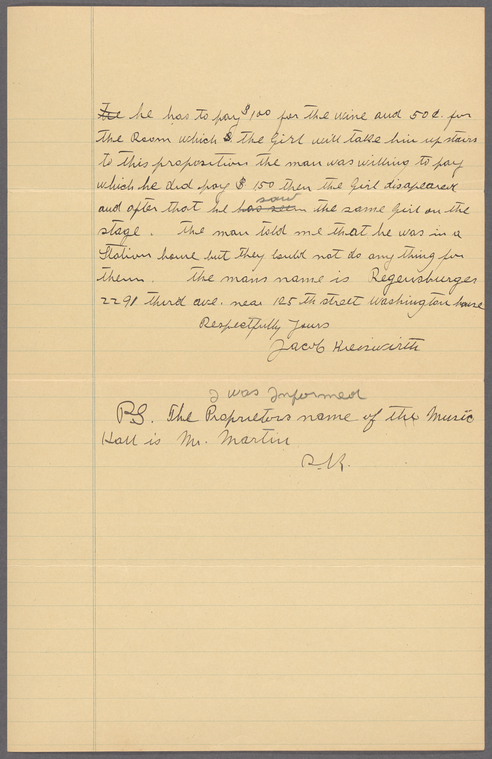 The he has to pay $1 00 for the wine and 50¢. for
the Room which $ the Girl will take him upstairs
to this proposition the man was willing to pay
which he did pay $ 1 50 then the Girl disapeared
saw
and after that he has seen the same Girl on the
stage. the man told me that he was in a
Station house but they could not do any thing for
them. The mans name is Regensburger
2291 third ave. near 125th street Washington house
Respectfully Yours
Jacob Kreiswirth
I was Informed
P.S. The Proprietors name of the Music
Hall is Mr. Martin